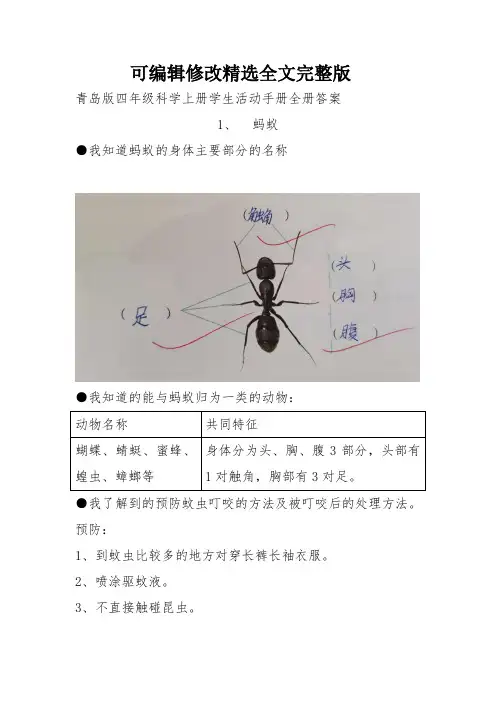 可编辑修改精选全文完整版
青岛版四年级科学上册学生活动手册全册答案
1、 蚂蚁
●我知道蚂蚁的身体主要部分的名称
(触角)
(足)
(头)
(胸)
(腹)
●我知道的能与蚂蚁归为一类的动物:
动物名称 共同特征
蝴蝶、蜻蜓、蜜蜂、 身体分为头、胸、腹3部分,头部有
蝗虫、蟑螂等 1对触角,胸部有3对足。
●我了解到的预防蚊虫叮咬的方法及被叮咬后的处理方法。
预防:
1、到蚊虫比较多的地方对穿长裤长袖衣服。
2、喷涂驱蚊液。
3、不直接触碰昆虫。